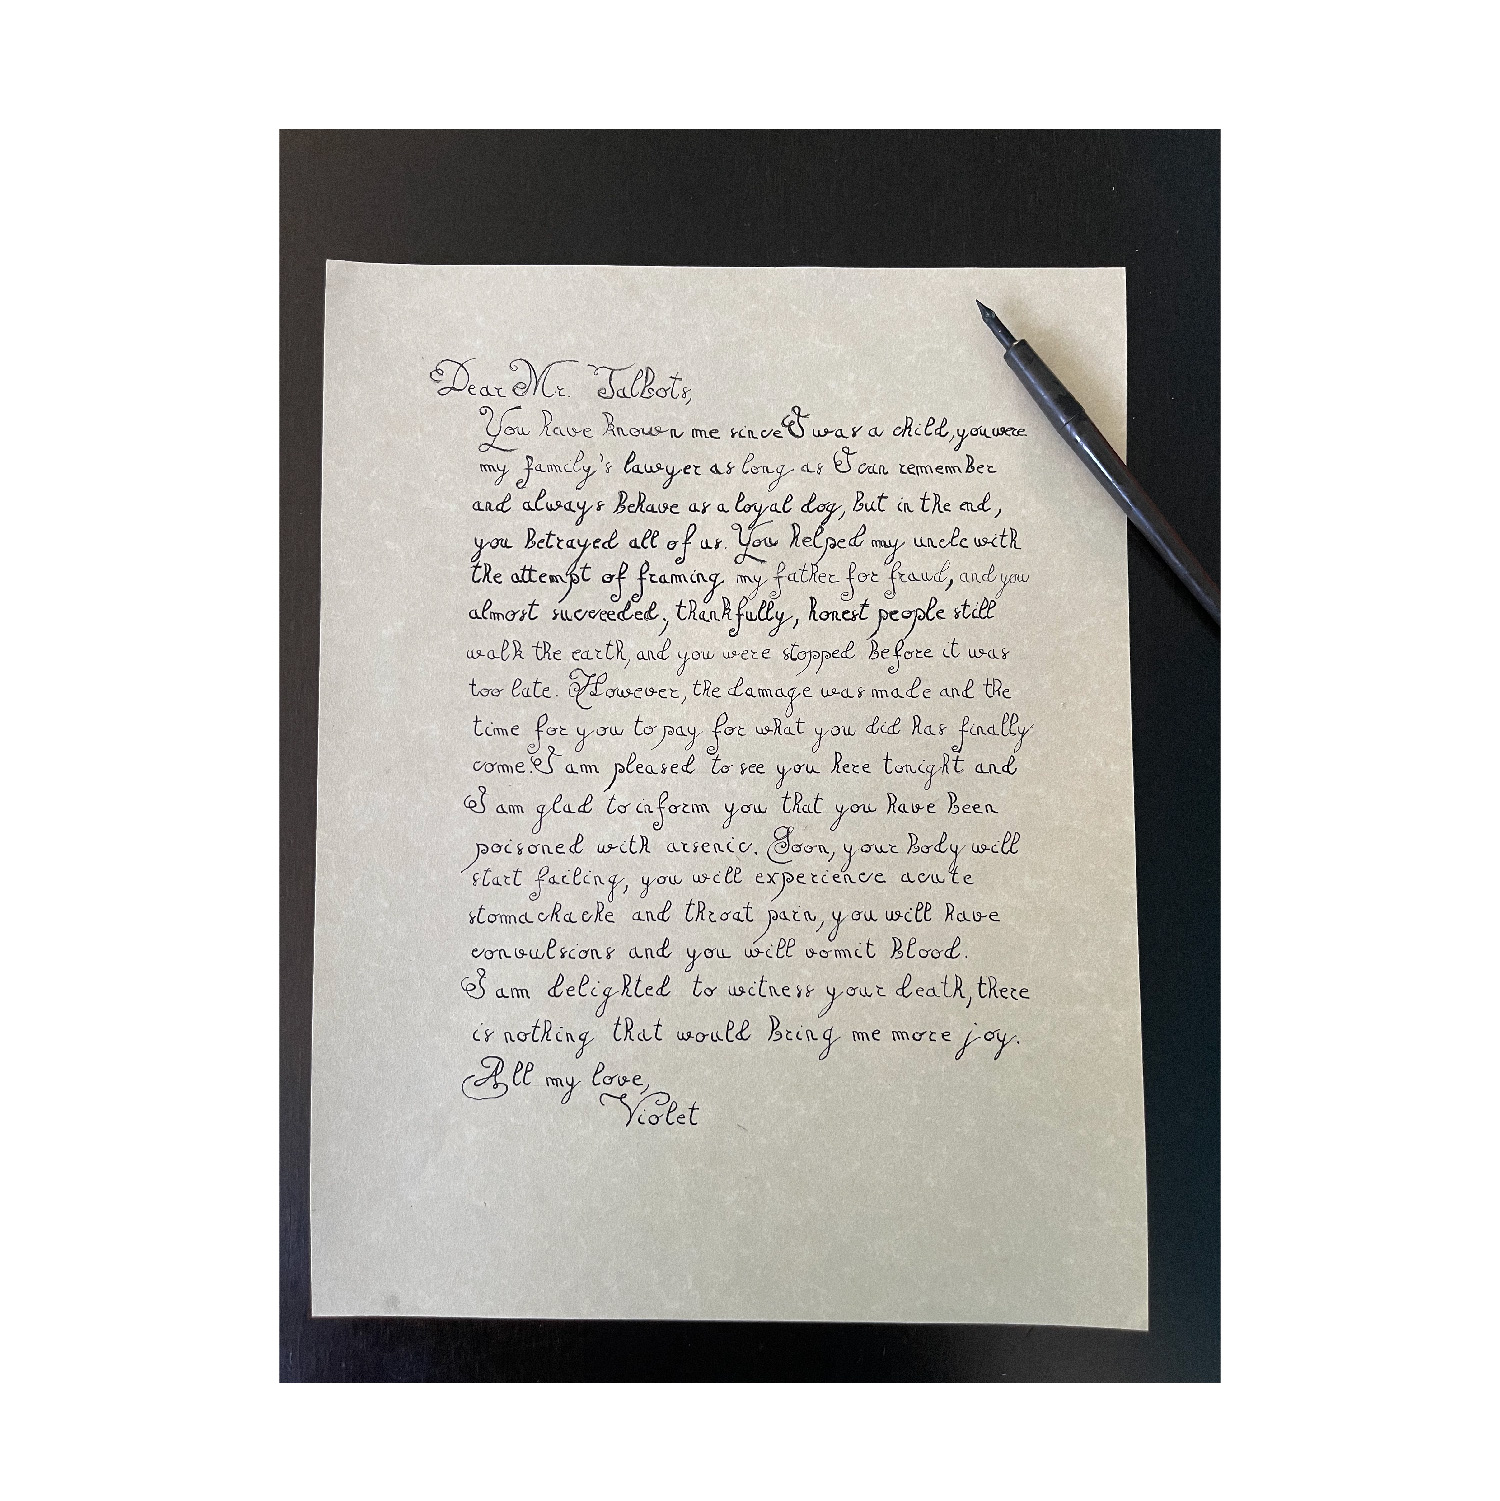 Dear Mr. Talbots,
You have known me since I was a child, you were
my family's lawyer as long as I can remember
and always behave as a loyal dog, but in the end,
you betrayed all of us. You helped my uncle with
the attempt of framing my father for fraud, and you
almost succeeded, thankfully, honest people still
walk the earth, and you were stopped before it was
too late. However, the damage was made and the
time for you to pay for what you did has finally
come. I am pleased to see you here tonight and
I am glad to inform you that you have been
poisoned with arsenic. Soon, your body will
start failing, you will experience acute
stomachache and throat pain, you will have
convulsions and you will vomit blood.
I am delighted to witness your death, there
is nothing that would bring me more joy.
All my love,
Violet